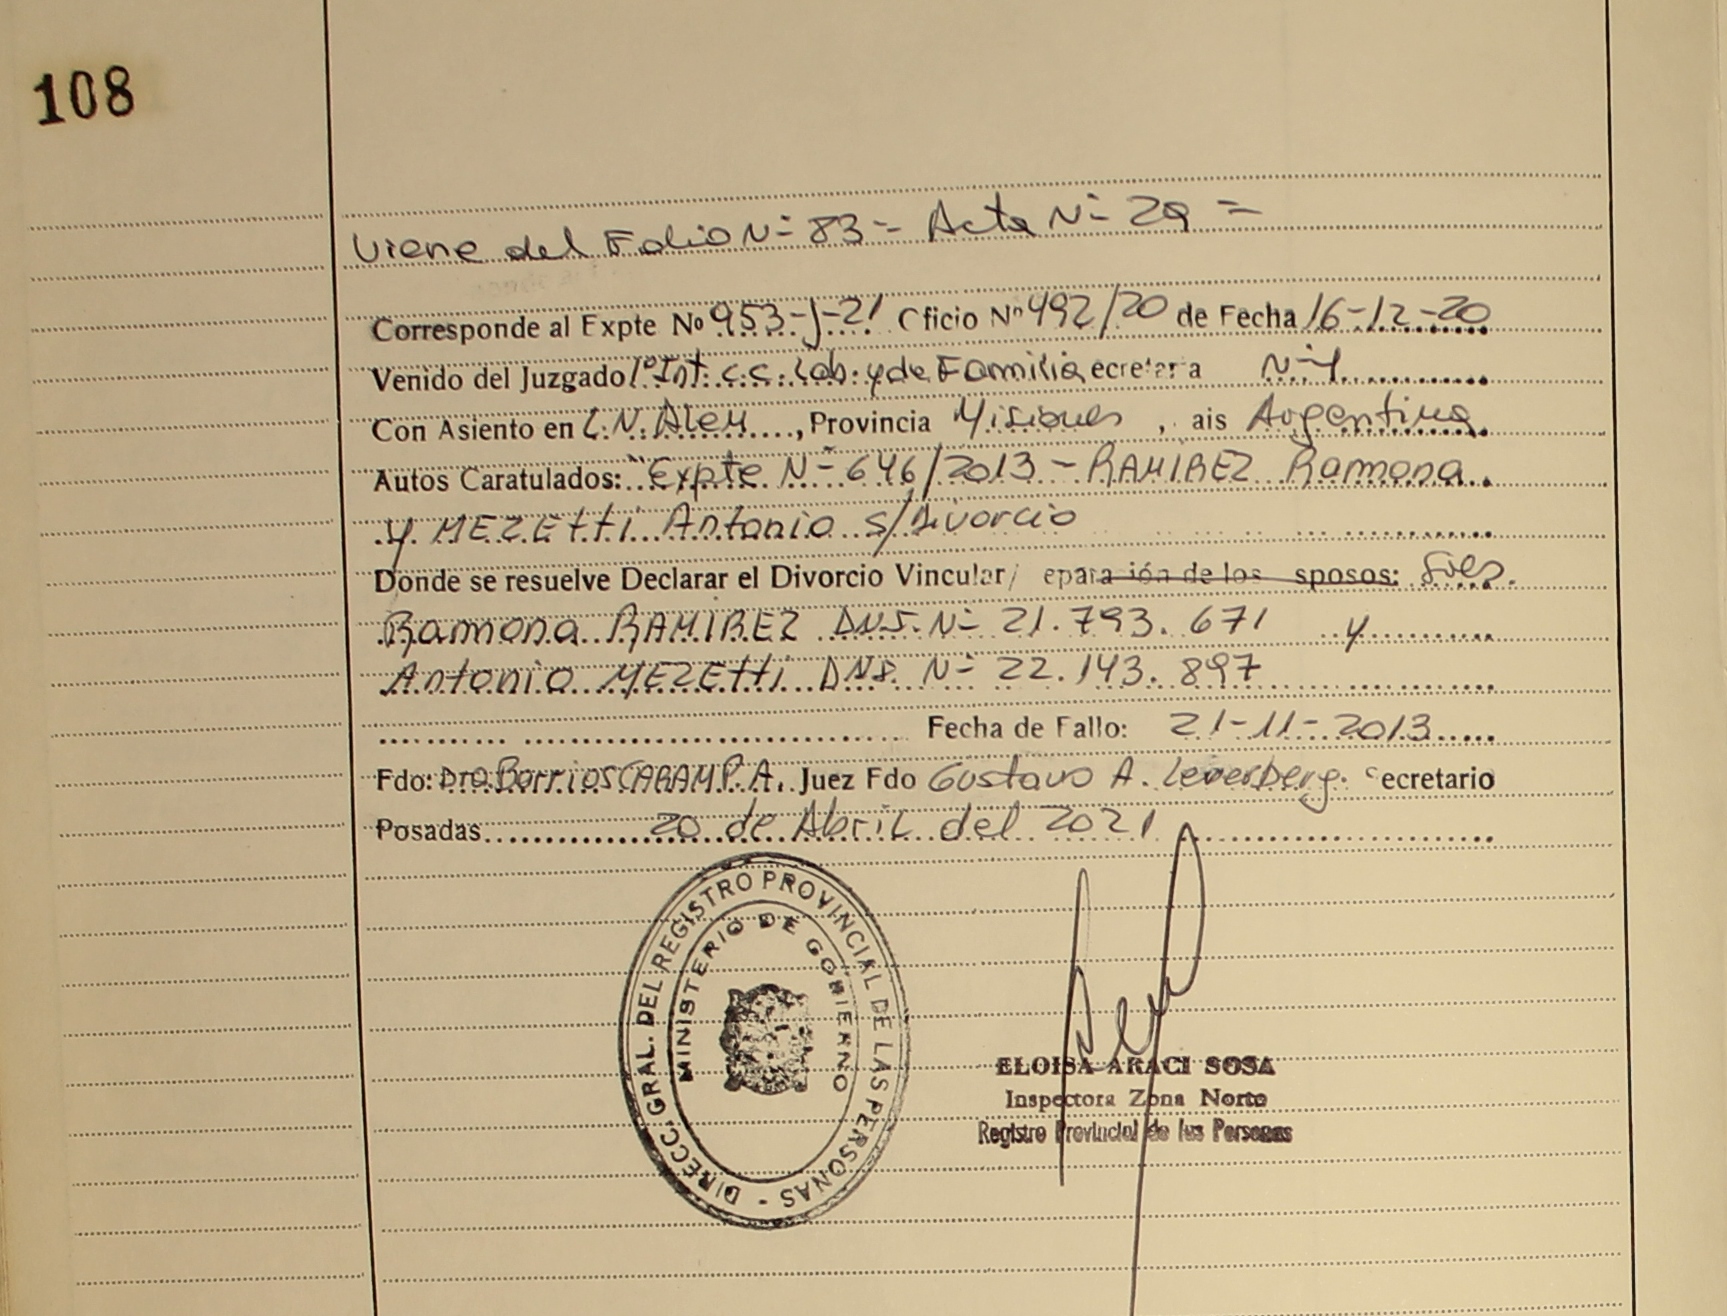 108
Viene del Folio N- 83 - Acta N- 29 =
Corresponde al Expte No 953-J-21 Oficio Nº 492/20 de Fecha 16-12-20
Venido del Juzgado 1º Int. C.C. Lab. y de Familia ecretar a N-1
Con Asiento en L.N. Alem, Provincia Misiones, ais Argentina
Autos Caratulados: "Expte N- 646/2013 - RAMIREZ Ramona
y MEZETTI Antonio s/Divorcio
Donde se resuelve Declarar el Divorcio Vincular/ epara ión de los sposos: Sres.
Ramona RAMIREZ DNI. N- 21.793.671 y
Antonio MEZETTI DNI. N- 22.143.897
Fecha de Fallo: 21-11-2013
Fdo: Dra Barrios CARAM P. A. Juez Fdo Gustavo A. Leverberg. Secretario
Posadas 20 de Abril del 2021
DIRECC. GRAL. DEL REGISTRO PROVINCIAL DE LAS PERSONAS -
MINISTERIO DE GOBIERNO
ELOISA ARACI SOSA
Inspectora Zona Norte
Registro Provincial de las Personas